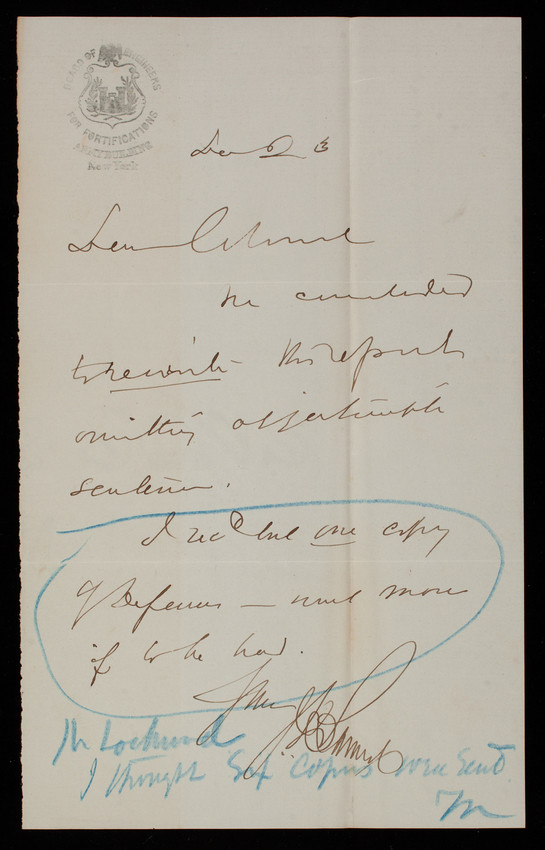 BOARD OF ENGINEERS
FOR FORTIFICATIONS
ARMY BUILDING
New York
Dec 23
Dear Colonel
We concluded
to rewrite this report
omitting objectionable
sentence.
I recd but one copy
of Defences — want more
if to be had.
Yours
Mr Lockwood
I thought Six Copies were sent